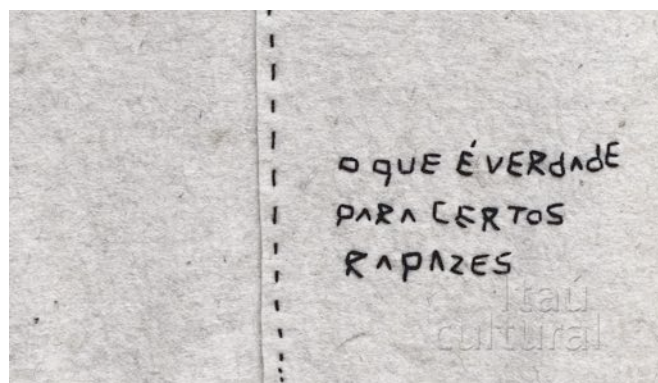 O QUE É VERdAdE
PARA CERTOS
RAPAZES
Itaú
cultural